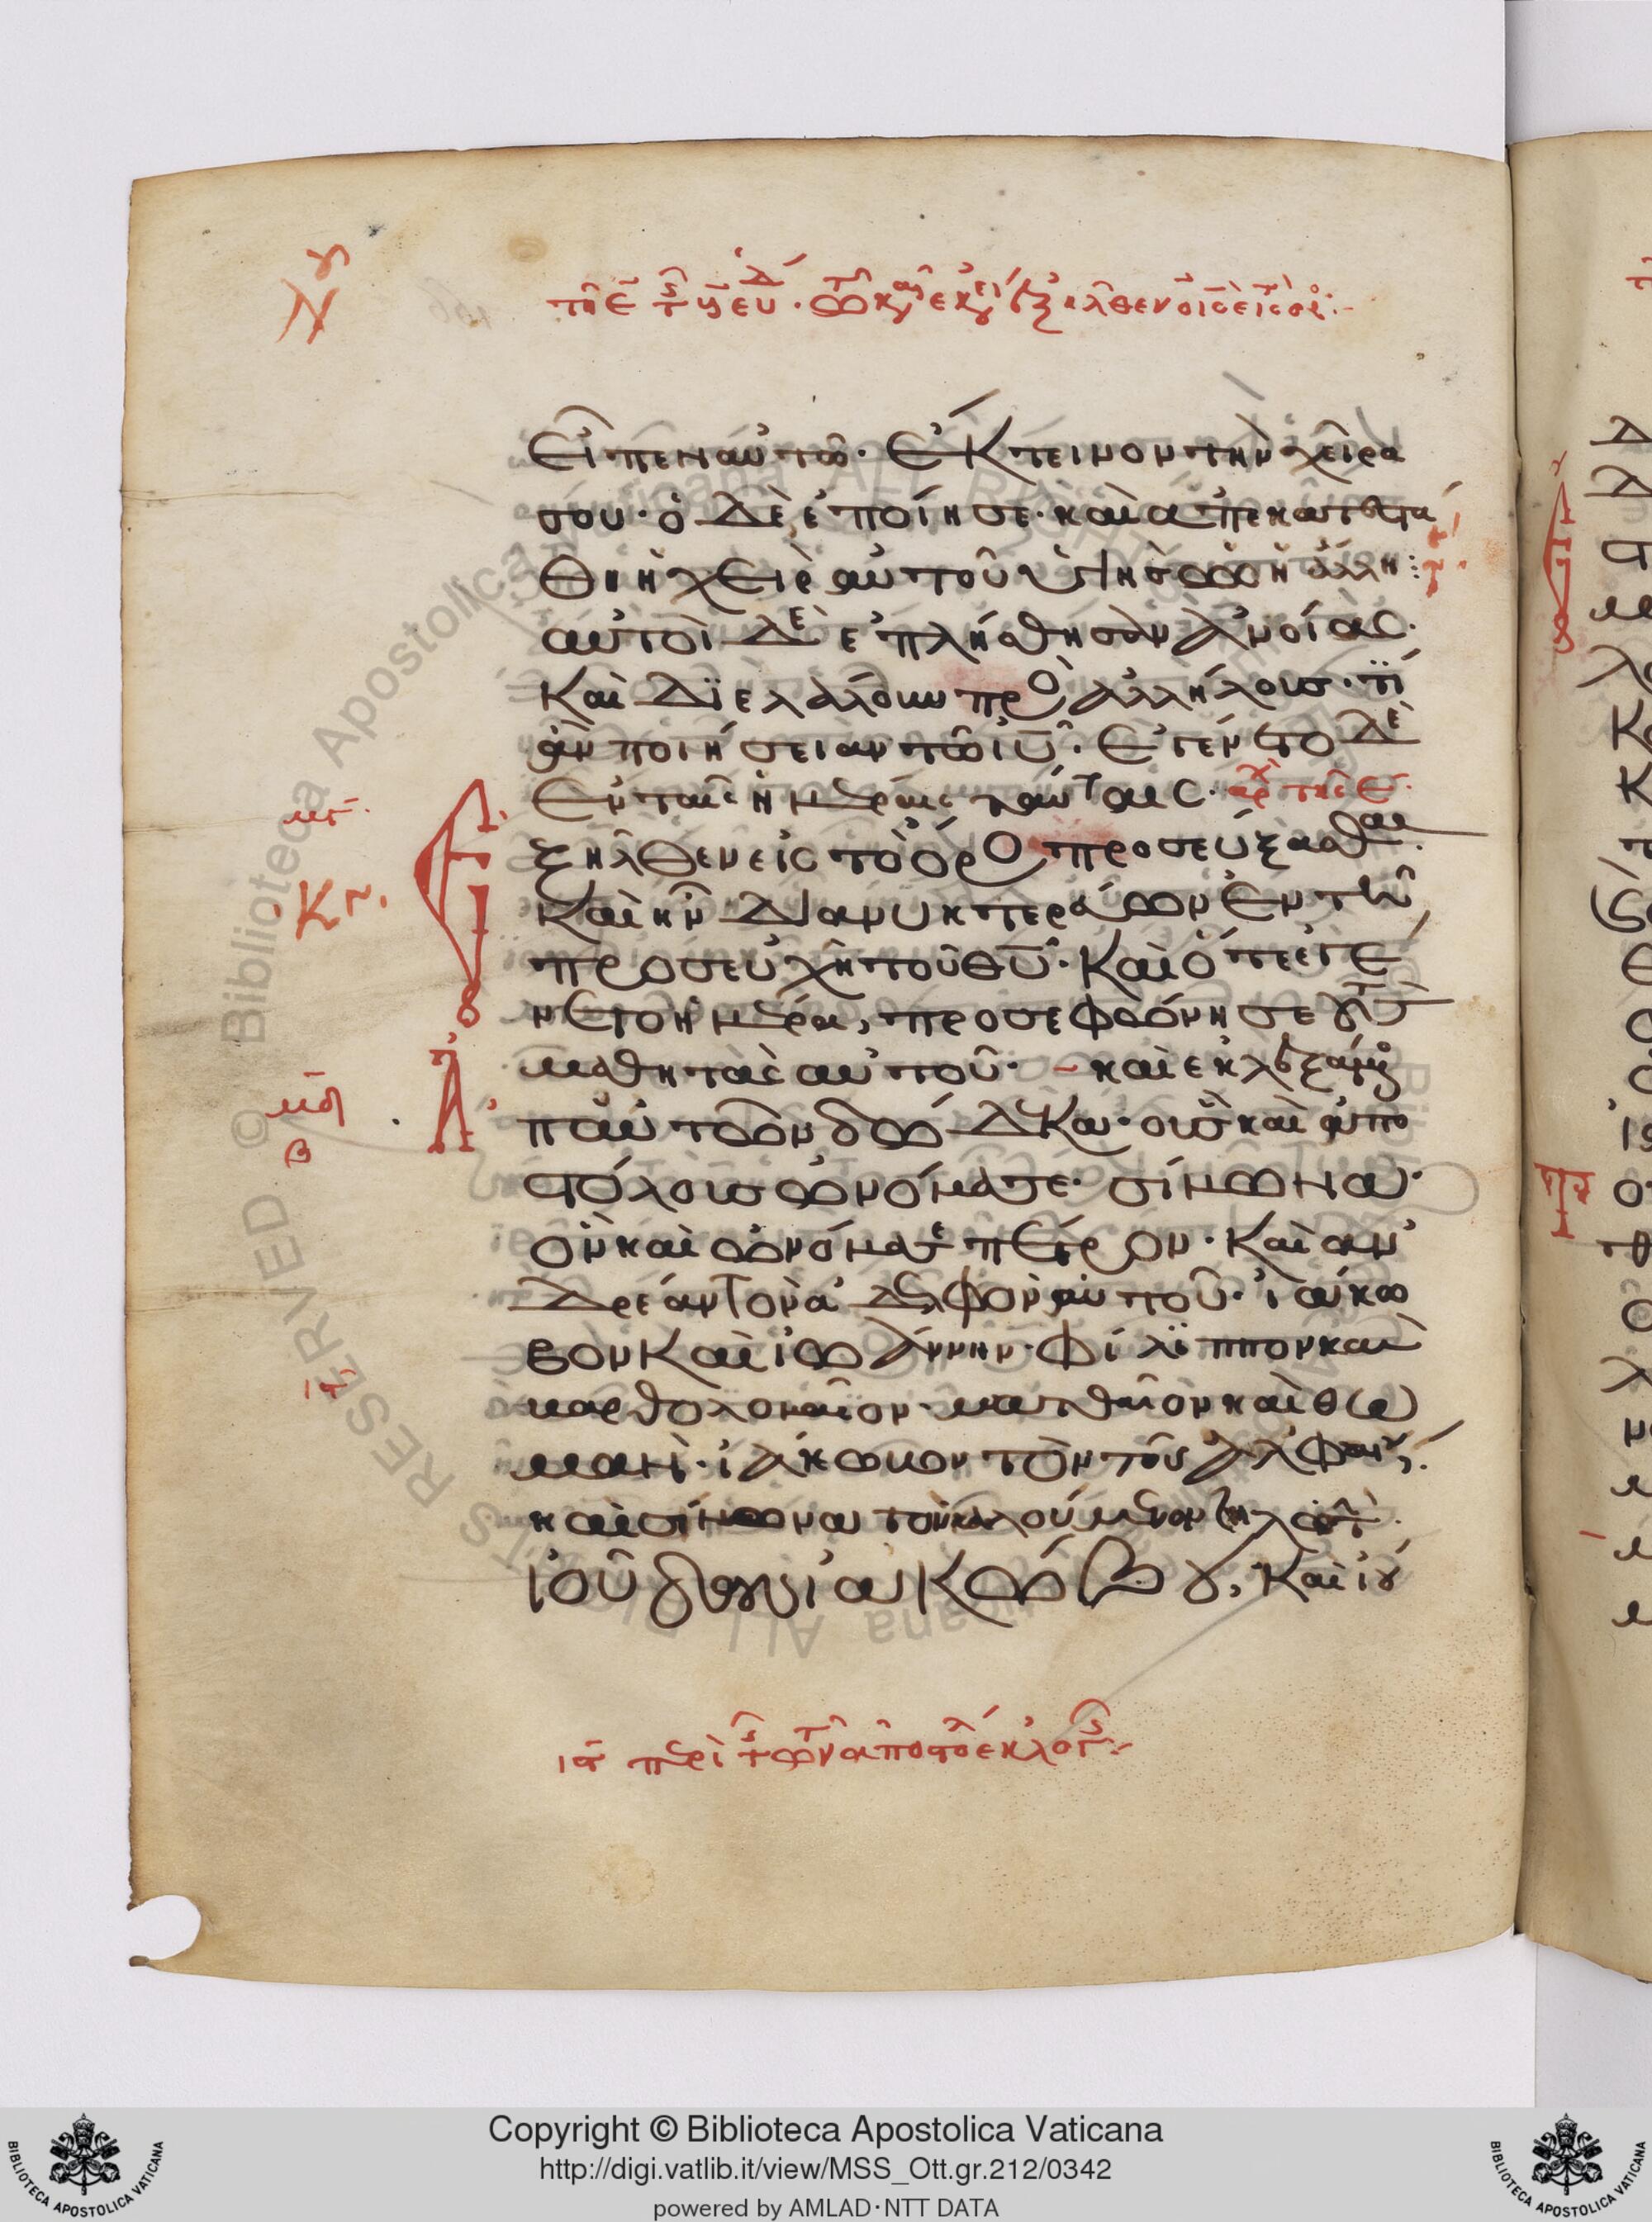 εἶπεν αὐτῶ· ἔκτεινον τὴν χεῖρα
σου· ὁ δὲ ἐποίησε· καὶ ἀπεκατεστά
θη ἡ χεὶρ αὐτοῦ ὑγιὴς ὡς ἡ ἄλλη:
αὐτοὶ δὲ ἐπλήσθησαν ἀνοίας·
καὶ διελάλουν πρὸ ἀλλήλους· τί
ἂν ποιήσειαν τῶ ιυ· Ἐγένετο δὲ
ἐν ταῖς ἡμέραις ταύταις· ἀρχ τῆς ε
ξῆλθεν εἰς τὸ ὄρο προσεύξασθαι·
καὶ ἦν διανυκτερεύων ἐν τῆ
προσευχῆ τοῦ θυ· καὶ ὅτε ἐγέ
νετο ἡμέρα, προσεφώνησε τοὺς
μαθητὰς αὐτοῦ· καὶ ἐκλεξάμενος
π αὐτῶν δώδεκα· οὓς καὶ ἀπο
στόλους ὠνόμασε· σίμωνα·
ὃν καὶ ὠνόμασε πέτρον· καὶ ἀν
δρέαν τὸν ἀδελφὸν αὐτοῦ· ἰάκω
βον καὶ ἰωάννην· φίλιππον καὶ
βαρθολομαῖον· ματθαῖον καὶ θω
μᾶν· ἰάκωβον τὸν τοῦ ἀλφαίου·
καὶ σίμωνα τὸν καλούμενον ζηλωτὴν·
ἰούδαν ἰακώβου, καὶ ἰού
ια περὶ τῆς τῶν ἀποστόλων ἐκλογῆς
Copyright © Biblioteca Apostolica Vaticana
http://digi.vatlib.it/view/MSS_Ott.gr.212/0342
powered by AMLAD·NTT DATA
BIBLIOTECA APOSTOLICA VATICANA
BIBLIOTECA APOSTOLICA VATICANA